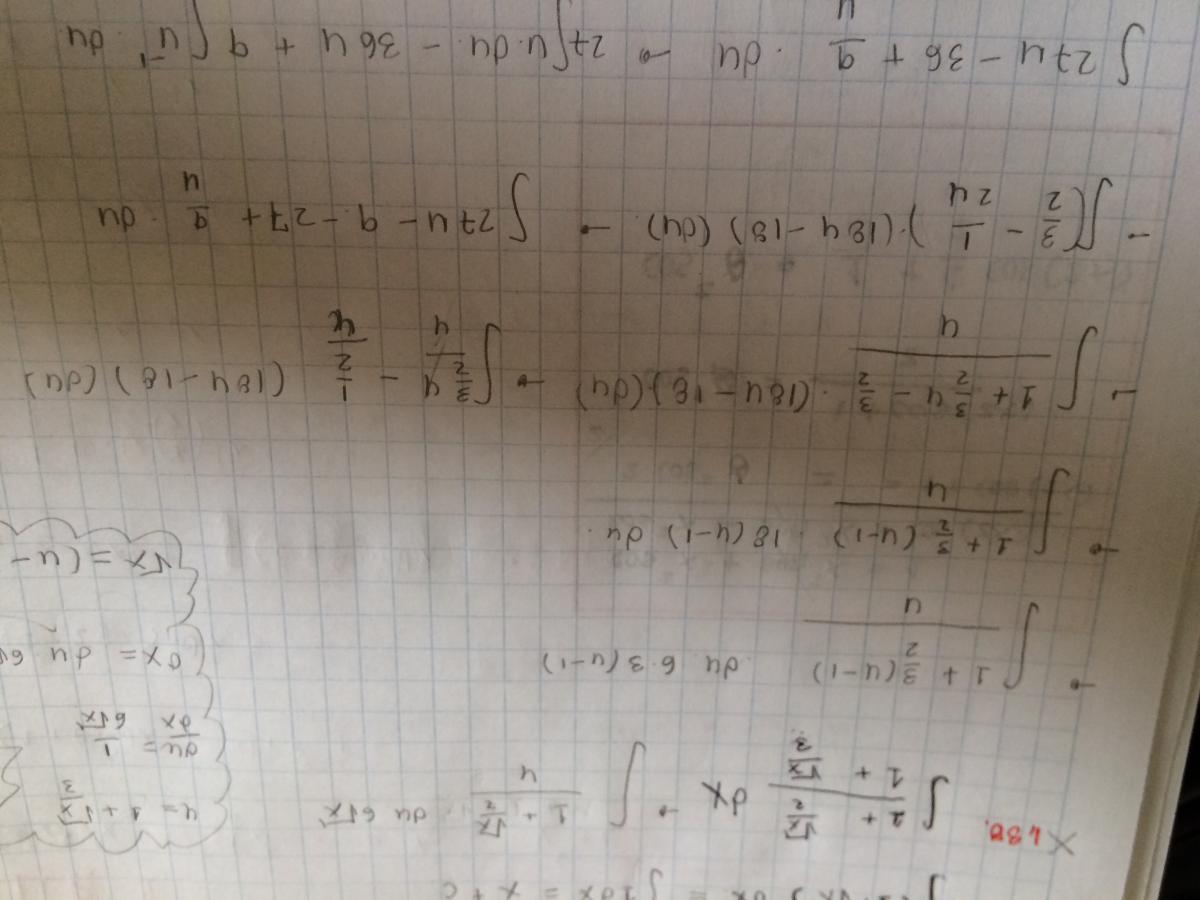 ∫1dx = x + c
X 488. ∫ \frac{1 + \frac{\sqrt{x}}{2}}{1 + \frac{\sqrt{x}}{3}} dx → ∫ \frac{1 + \frac{\sqrt{x}}{2}}{u} du 6\sqrt{x}
u = 1 + \frac{\sqrt{x}}{3}
\frac{du}{dx} = \frac{1}{6\sqrt{x}}
dx = du 6
\sqrt{x} = (u -
→ ∫ \frac{1 + \frac{3}{2}(u-1)}{u} · du 6·3(u-1)
→ ∫ \frac{1 + \frac{3}{2}(u-1)}{u} · 18(u-1) du
→ ∫ \frac{1 + \frac{3}{2}u - \frac{3}{2}}{u} · (18u - 18)(du) → ∫ \frac{\frac{3}{2}u}{u} - \frac{\frac{1}{2}}{u} (18u - 18)(du)
→ ∫(\frac{3}{2} - \frac{1}{2u})·(18u - 18)(du) → ∫ 27u - 9 - 27 + \frac{9}{u} · du
∫ 27u - 36 + \frac{9}{u} · du → 27∫u·du - 36u + 9∫u^{-1}·du